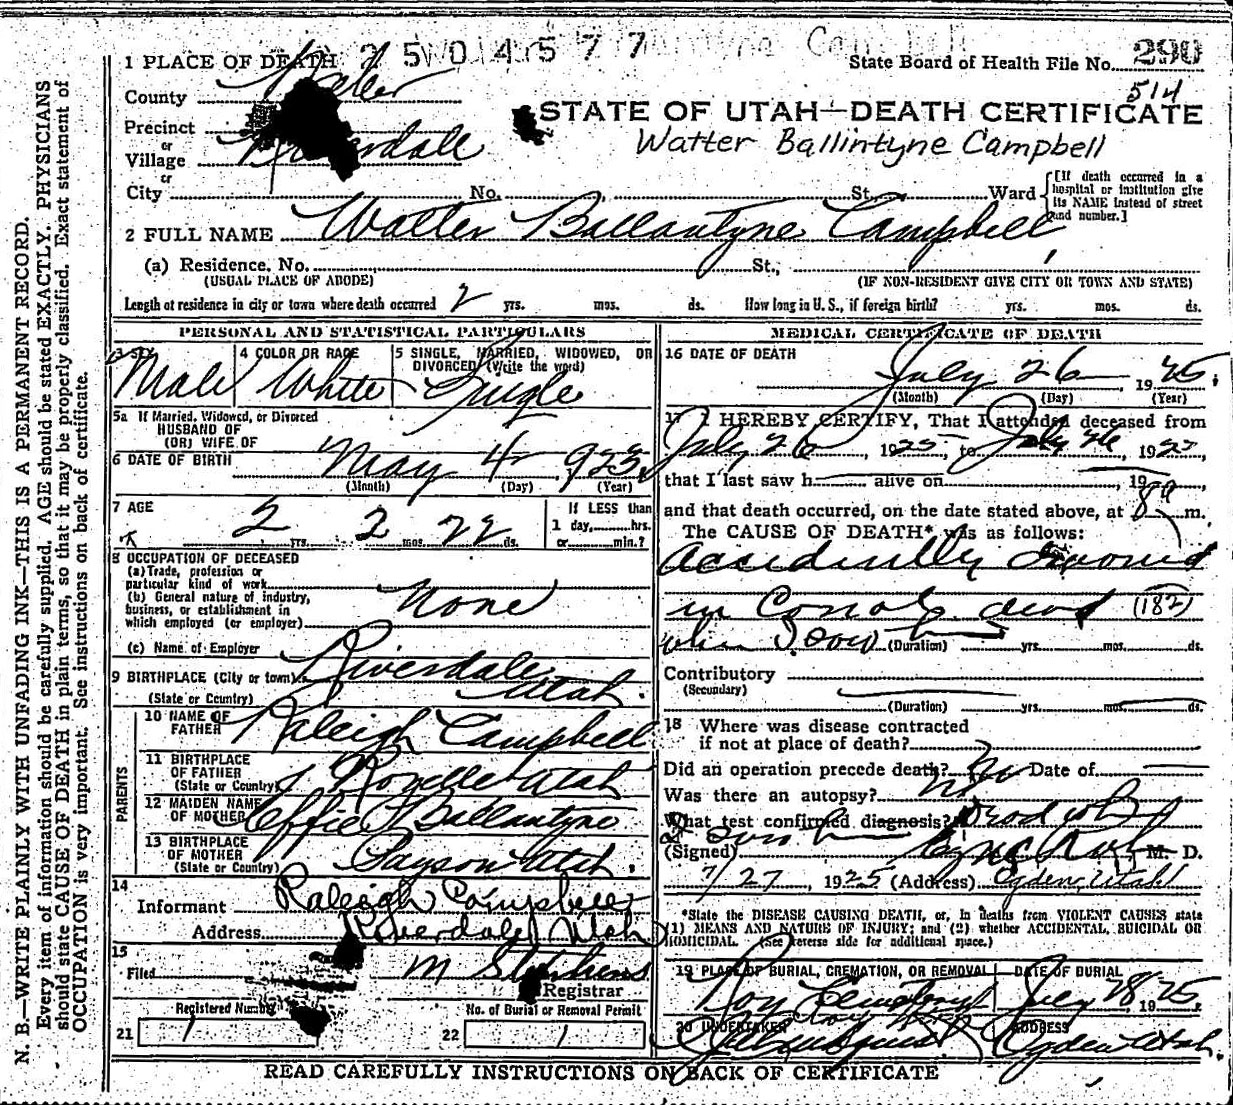 2 5 0 4 5 7 7
1 PLACE OF DEATH
State Board of Health File No. 290
514
County Weber
STATE OF UTAH—DEATH CERTIFICATE
Precinct
or
Village Riverdale
Walter Ballintyne Campbell
or
City No. St. Ward
[If death occurred in a hospital or institution give its NAME instead of street and number.]
2 FULL NAME Walter Ballantyne Campbell
(a) Residence, No. St.,
(USUAL PLACE OF ABODE) (IF NON-RESIDENT GIVE CITY OR TOWN AND STATE)
Length of residence in city or town where death occurred 2 yrs. mos. ds. How long in U. S., if foreign birth? yrs. mos. ds.
PERSONAL AND STATISTICAL PARTICULARS
3 SEX Male
4 COLOR OR RACE White
5 SINGLE, MARRIED, WIDOWED, OR DIVORCED (Write the word) Single
5a If Married, Widowed, or Divorced
HUSBAND OF
(OR) WIFE OF
6 DATE OF BIRTH May 4 1923
(Month) (Day) (Year)
7 AGE 2 yrs. 2 mos. 22 ds.
If LESS than
1 day, hrs.
or min.?
8 OCCUPATION OF DECEASED
(a) Trade, profession or
particular kind of work
(b) General nature of industry,
business, or establishment in
which employed (or employer) None
(c) Name of Employer
9 BIRTHPLACE (City or town) Riverdale
(State or Country) Utah.
PARENTS
10 NAME OF FATHER Raleigh Campbell
11 BIRTHPLACE OF FATHER
(State or Country) Utah
12 MAIDEN NAME OF MOTHER Effie Ballantyne
13 BIRTHPLACE OF MOTHER
(State or Country) Payson Utah.
14
Informant Raleigh Campbell
Address Riverdale, Utah
15
Filed M Stephens
Registrar
Registered Number
21 1
No. of Burial or Removal Permit
22 1
MEDICAL CERTIFICATE OF DEATH
16 DATE OF DEATH
July 26, 1925.
(Month) (Day) (Year)
17 I HEREBY CERTIFY, That I attended deceased from
July 26, 1925, to July 26, 1925,
that I last saw h alive on , 19
and that death occurred, on the date stated above, at 8 a m.
The CAUSE OF DEATH* was as follows:
accidentally
in dead (182)
when I saw
(Duration) yrs. mos. ds.
Contributory
(Secondary)
(Duration) yrs. mos. ds.
18 Where was disease contracted
if not at place of death?
Did an operation precede death? No Date of
Was there an autopsy? No
What test confirmed diagnosis?
(Signed) M. D.
7/27, 1925 (Address) Ogden, Utah
*State the DISEASE CAUSING DEATH, or, in deaths from VIOLENT CAUSES state
(1) MEANS AND NATURE OF INJURY; and (2) whether ACCIDENTAL, SUICIDAL OR
HOMICIDAL. (See reverse side for additional space.)
19 PLACE OF BURIAL, CREMATION, OR REMOVAL DATE OF BURIAL
Roy Cemetery July 28, 1925.
20 UNDERTAKER ADDRESS
Ogden Utah.
READ CAREFULLY INSTRUCTIONS ON BACK OF CERTIFICATE
N. B.—WRITE PLAINLY WITH UNFADING INK—THIS IS A PERMANENT RECORD.
Every item of information should be carefully supplied. AGE should be stated EXACTLY. PHYSICIANS
should state CAUSE OF DEATH in plain terms, so that it may be properly classified. Exact statement of
OCCUPATION is very important. See instructions on back of certificate.